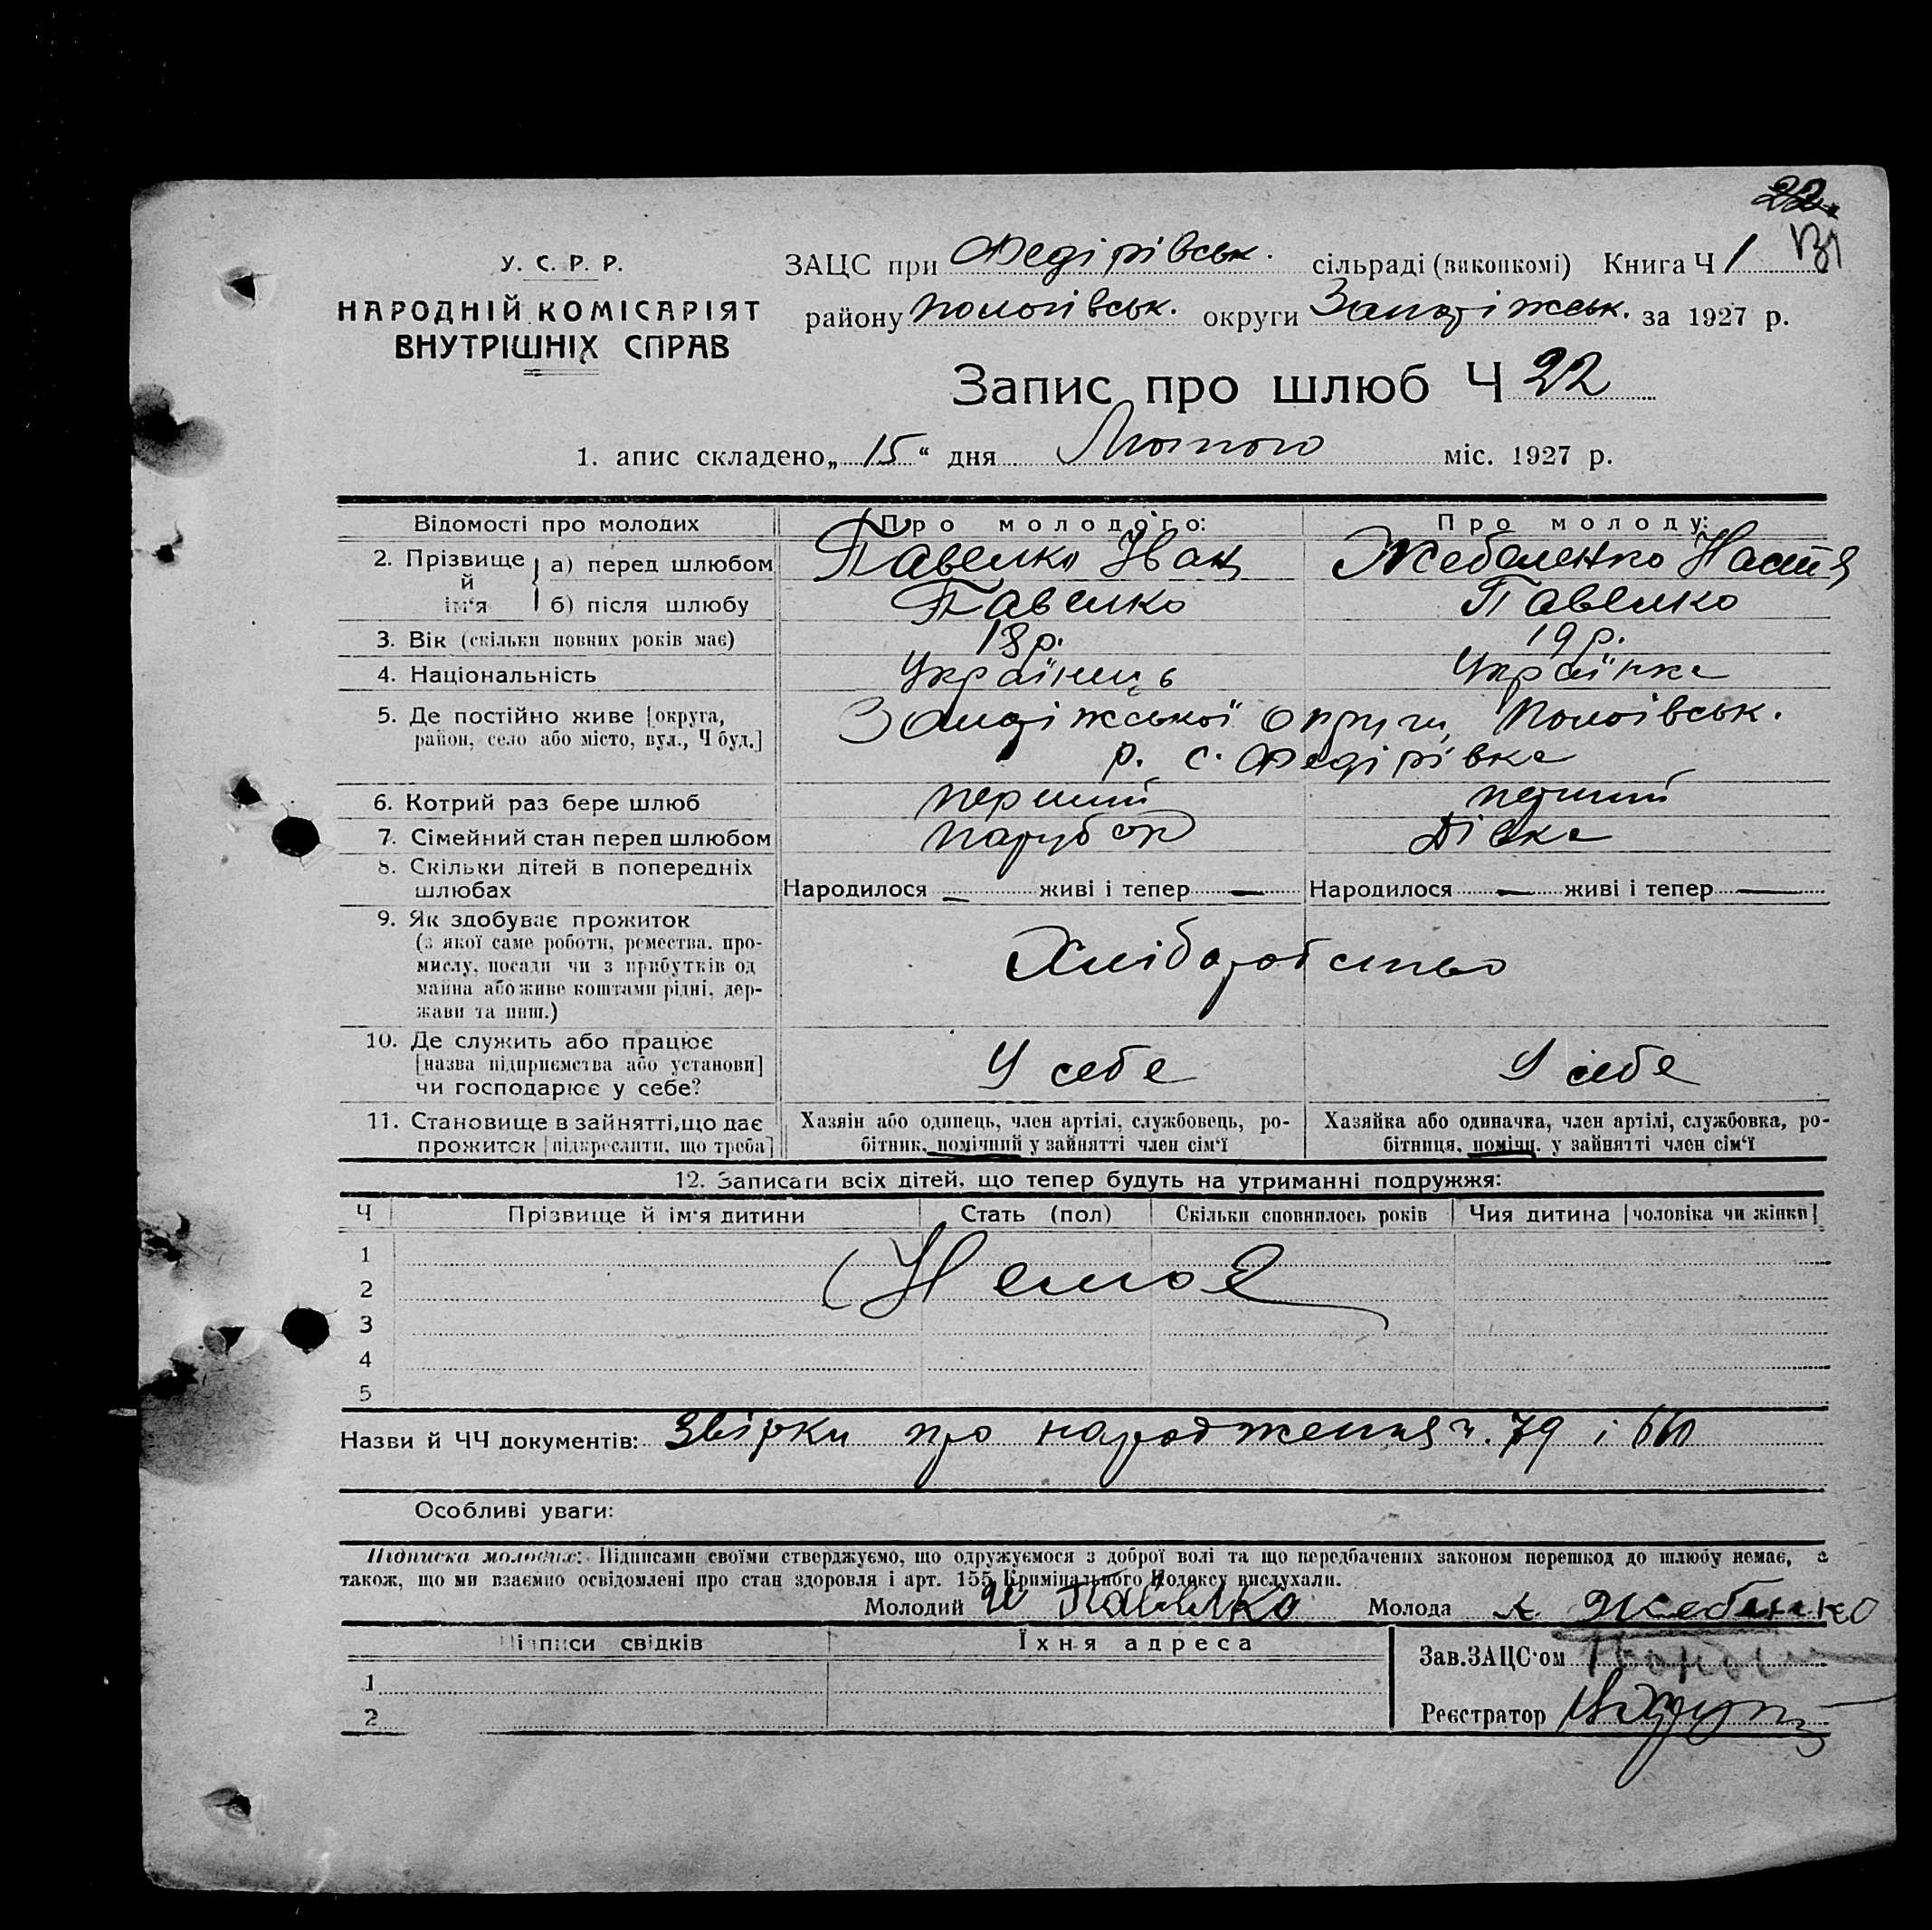 22.
У. С. Р. Р.
НАРОДНІЙ КОМІСАРІЯТ
ВНУТРІШНІХ СПРАВ
ЗАЦС при Федірівськ. сільраді (виконкомі) Книга Ч 1
району Пологівськ. округи Запоріжськ. за 1927 р.
Запис про шлюб Ч 22
1. апис складено „ 15 “ дня Лютого міс. 1927 р.
Відомості про молодих Про молодого: Про молоду:
2. Прізвище й ім‘я а) перед шлюбом Павелко Іван Жебаленко Настя
б) після шлюбу Павелко Павелко
3. Вік (скільки повних років має) 18 р. 19 р.
4. Національність Українець Українка
5. Де постійно живе [округа, Запоріжської округи, Пологівськ.
район, село або місто, вул., Ч буд.] р. с. Федірівка
6. Котрий раз бере шлюб перший перший
7. Сімейний стан перед шлюбом парубок Дівка
8. Скільки дітей в попередніх
шлюбах Народилося — живі і тепер — Народилося — живі і тепер —
9. Як здобуває прожиток
(з якої саме роботи, ремества, про-
мислу, посади чи з прибутків од
майна або живе коштами рідні, дер-
жави та инш.) Хліборобство
10. Де служить або працює
[назва підприємства або установи] У себе У себе
чи господарює у себе?
11. Становище в зайнятті, що дає Хазяїн або одинець, член артілі, службовець, ро- Хазяйка або одиначка, член артілі, службовка, ро-
прожиток [підкреслити, що треба] бітник, помічний у зайнятті член сім‘ї бітниця, помічн. у зайнятті член сім‘ї
12. Записати всіх дітей, що тепер будуть на утриманні подружжя:
Ч Прізвище й ім‘я дитини Стать (пол) Скільки сповнилось років Чия дитина [чоловіка чи жінки]
1
2 Немає
3
4
5
Назви й ЧЧ документів: Звірки про народження ч. 79 і
Особливі уваги:
Підписка молодих: Підписами своїми стверджуємо, що одружуємося з доброї волі та що передбачених законом перешкод до шлюбу немає, а
також, що ми взаємно освідомлені про стан здоровля і арт. 155 Кримінального Кодексу вислухали.
Молодий И Павелко Молода
Підписи свідків Їхня адреса
Зав. ЗАЦС‘ом
1
Реєстратор
2